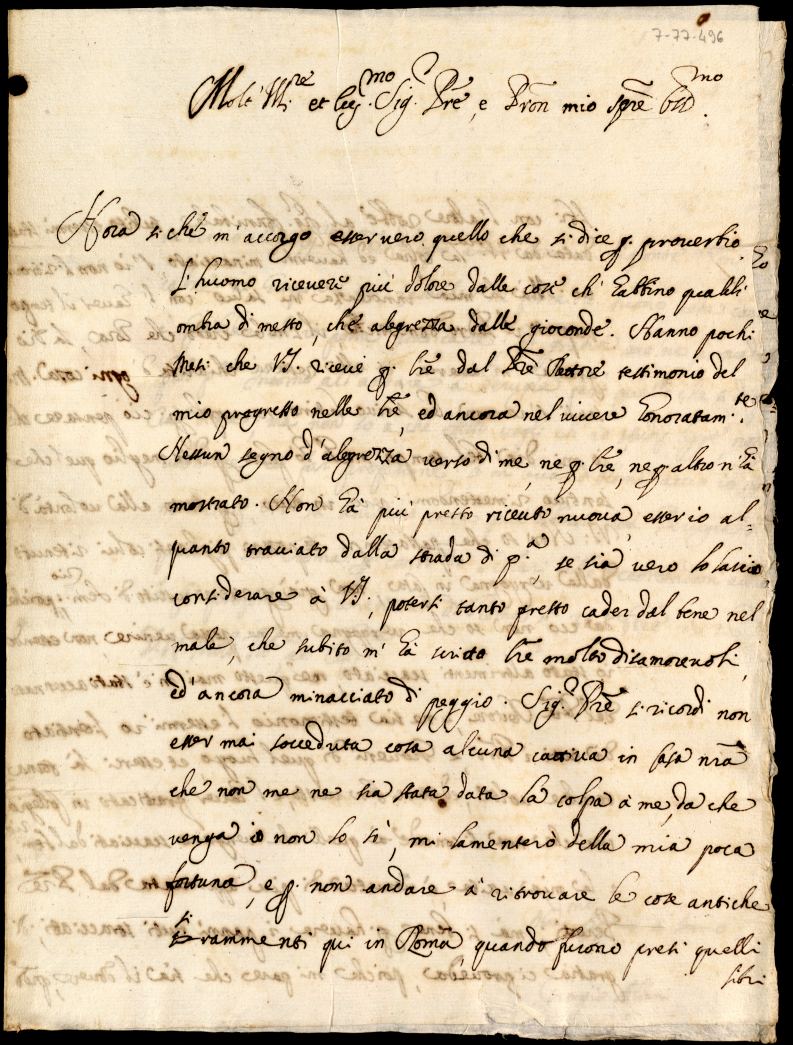 7-77-496
Molt' Ill.re et Ecc.mo Sig.r Pre, e Pron mio sempre oss.mo
Hora si che m'accorgo esser vero quello che si dice p. proverbio
L'huomo ricevere più dolore dalle cose ch' habbino qualch'
ombra di mesto, che alegrezza dalle gioconde. Hanno pochi
Mesi che V.S. riceve p. lre dal Pre Rettore testimonio del
mio progresso nelle lre, ed ancora nel vivere honoratam.te
Nessun segno d'alegrezza verso di me, ne p. lre, ne p. altro n'ha
mostrato. Non ha più presto riceuto nuova, esser io al-
quanto traviato dalla strada di p.a, se sia vero lo lascio
considerare à V.S., potersi tanto presto cader dal bene nel
male, che subito m' ha scritto lre molto disamorevoli,
ed'ancora minacciato di peggio. Sig.r Pre si ricordi non
esser mai socceduta cosa alcuna cattiva in casa nra
che non me ne sia stata data la colpa à me, da che
venga io non lo sò, mi lamenterò della mia poca
fortuna, e p. non andare à ritrovare le cose antiche
si rammenti qui in Roma quando furono presi quelli
libri